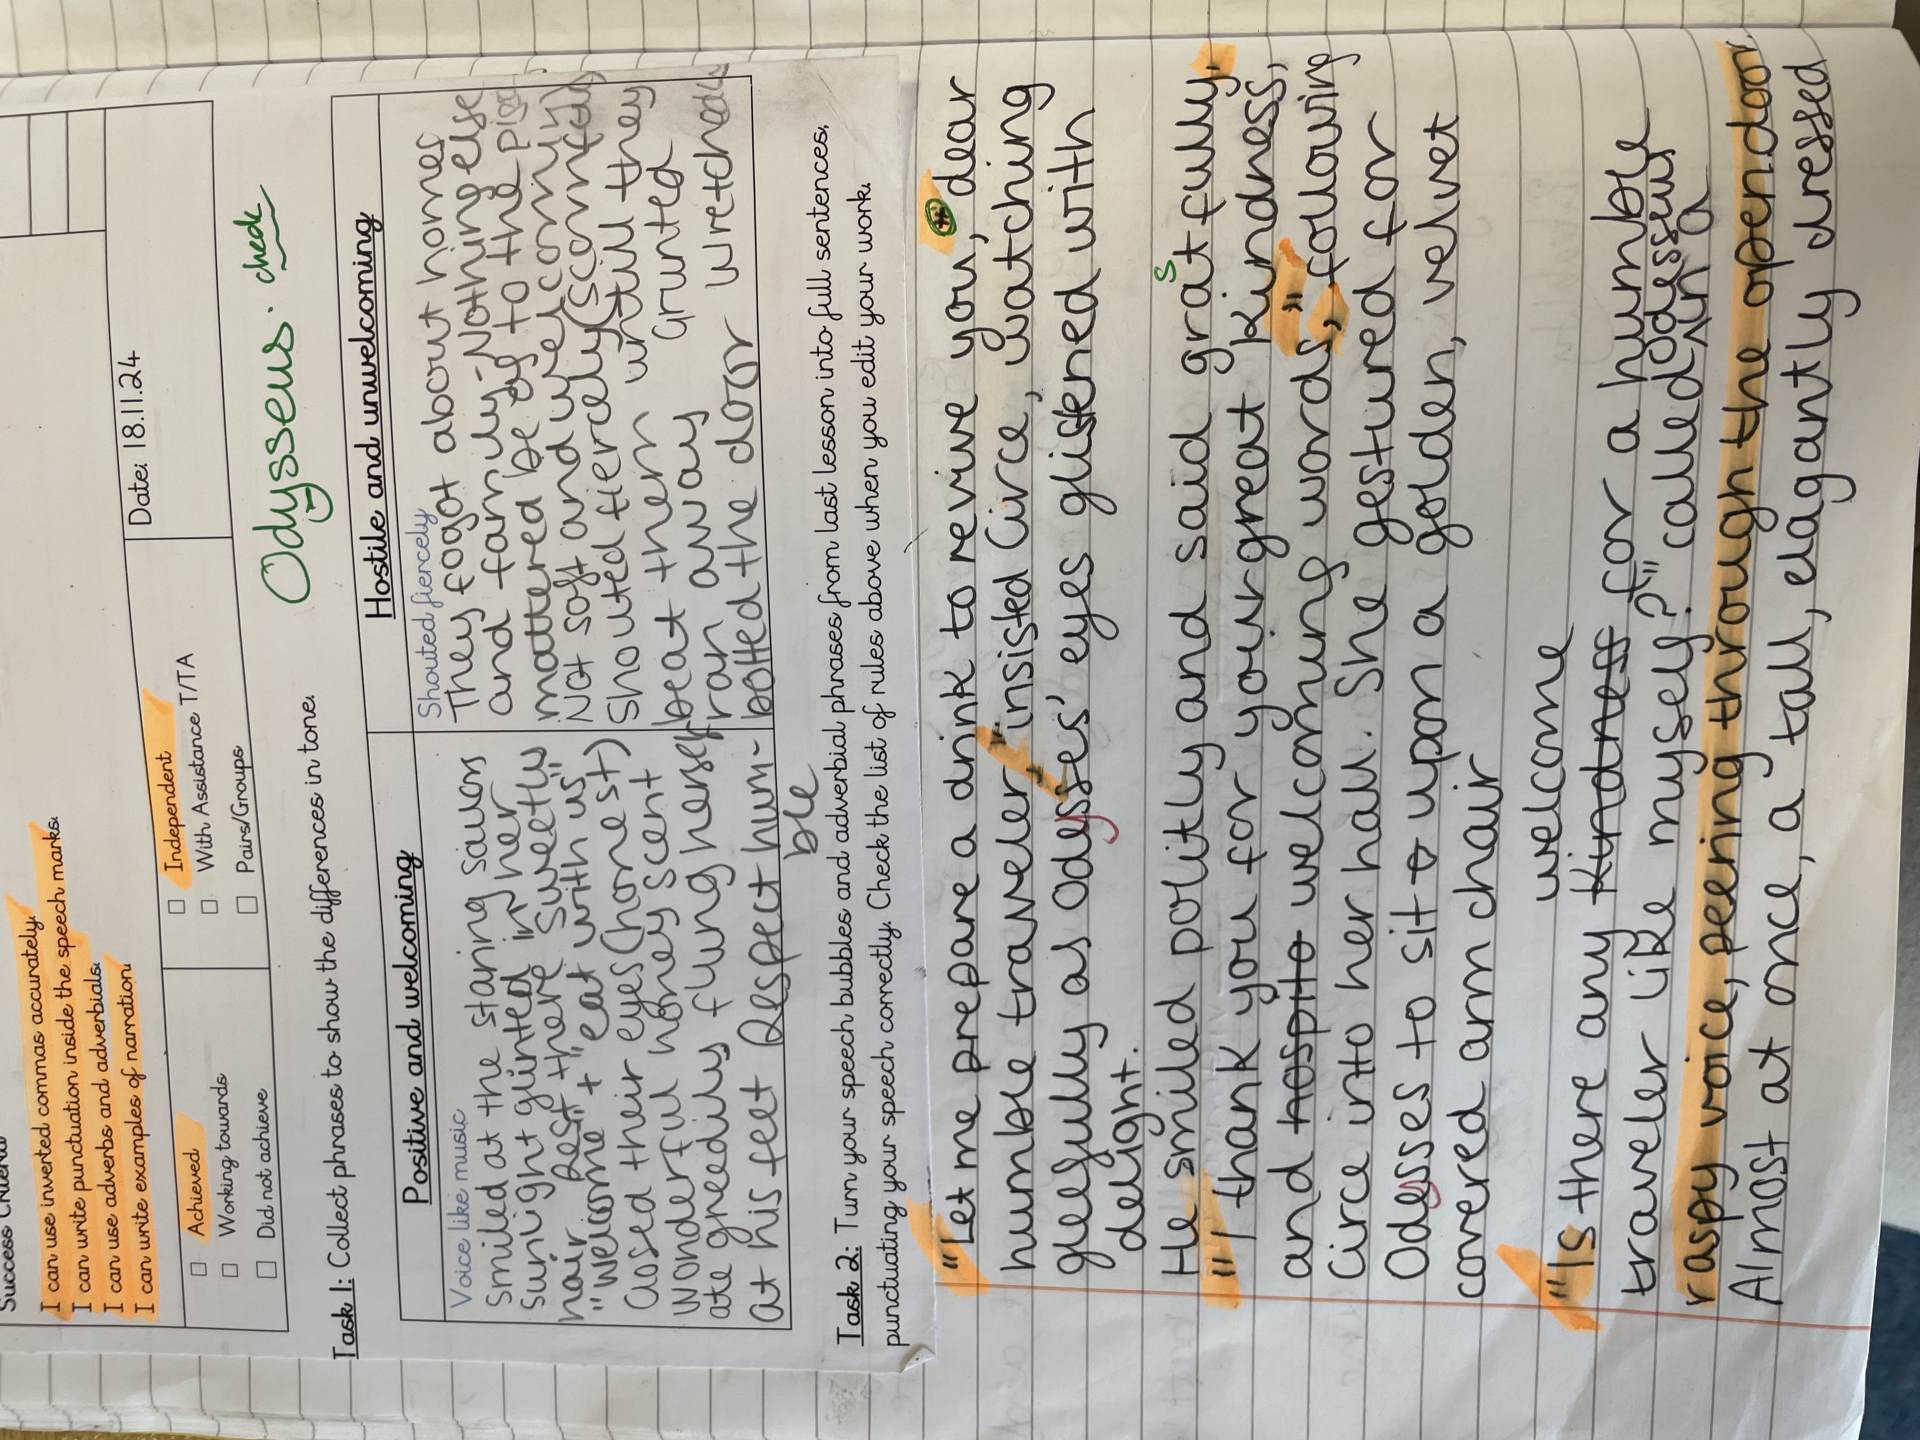 Success Criteria
I can use inverted commas accurately.
I can write punctuation inside the speech marks.
I can use adverbs and adverbials.
I can write examples of narration.
Date: 18.11.24
Achieved
Independent
Working towards
With Assistance T/TA
Did not achieve
Pairs/Groups
Odysseus. check
Task 1: Collect phrases to show the differences in tone.
Positive and welcoming
Voice like music
smiled at the staring sailors
sunlight glinted in her
hair Rest there sweetly
"Welcome" + "eat with us"
Closed their eyes (honest)
wonderful honey scent
ate greedily flung herself
at his feet Respect hum-
ble
Hostile and unwelcoming
Shouted fiercely
They fogot about homes
and family-Nothing else
mattered be to the
Not soft and welcoming
Shouted fiercely
beat them until they
ran away Grunted
bolted the door
Task 2: Turn your speech bubbles and adverbial phrases from last lesson into full sentences,
punctuating your speech correctly. Check the list of rules above when you edit your work.
"Let me prepare a drink to revive you, * dear
humble traveler" insisted Circe, watching
gleefully as Odesses' eyes glistened with
delight.
He smiled politly and said gratfully, s
"I thank you for your great kindness,
and hospito welcoming words," following
Circe into her hall. She gestured for
Odesses to sit o upon a golden, velvet
covered arm chair
welcome
"Is there any kindness for a humble
traveler like myself?" called Odesseus in a
raspy voice, peering through the open door.
Almost at once, a tall, elagantly dressed